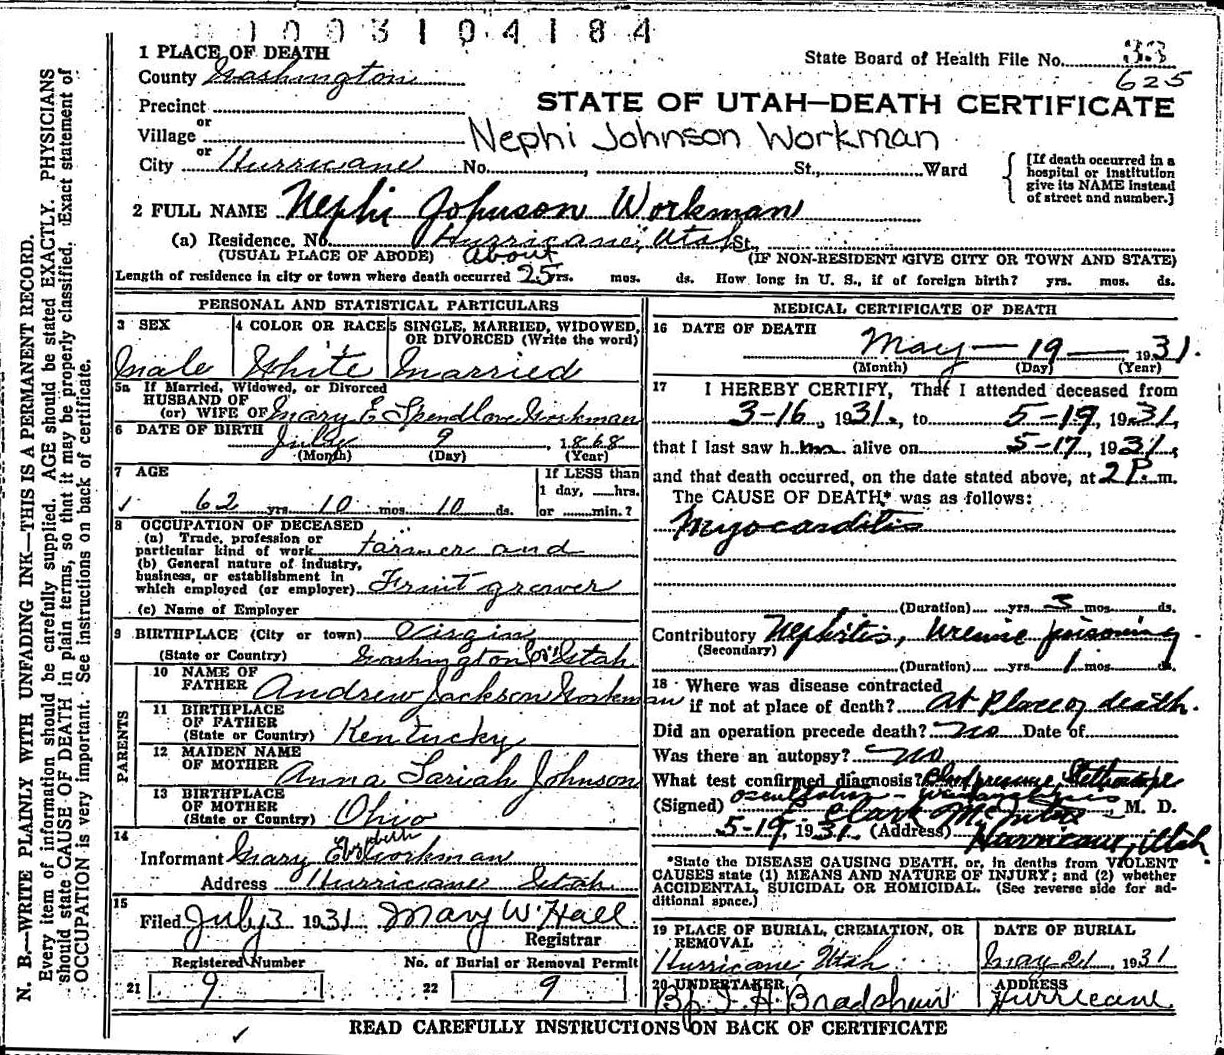 1003104184
State Board of Health File No. 33
625
1 PLACE OF DEATH
County Washington
STATE OF UTAH—DEATH CERTIFICATE
Precinct
or
Village
Nephi Johnson Workman
or
City Hurricane No. , St., Ward
[If death occurred in a
hospital or institution
give its NAME instead
of street and number.]
2 FULL NAME Nephi Johnson Workman
(a) Residence. No. Hurricane, Utah St.,
(USUAL PLACE OF ABODE) (IF NON-RESIDENT GIVE CITY OR TOWN AND STATE)
Length of residence in city or town where death occurred About 25 yrs. mos. ds. How long in U. S., if of foreign birth? yrs. mos. ds.
PERSONAL AND STATISTICAL PARTICULARS
3 SEX
Male
4 COLOR OR RACE
White
5 SINGLE, MARRIED, WIDOWED,
OR DIVORCED (Write the word)
Married
5a If Married, Widowed, or Divorced
HUSBAND OF
(or) WIFE OF Mary E Spendlove Workman
6 DATE OF BIRTH July 9, 1868
(Month) (Day) (Year)
7 AGE
62 yrs. 10 mos. 10 ds.
If LESS than
1 day, hrs.
or min.?
8 OCCUPATION OF DECEASED
(a) Trade, profession or
particular kind of work farmer and
(b) General nature of industry,
business, or establishment in
which employed (or employer) Fruit grower
(c) Name of Employer
9 BIRTHPLACE (City or town) Virgin
(State or Country) Washington Co Utah
PARENTS
10 NAME OF
FATHER Andrew Jackson Workman
11 BIRTHPLACE
OF FATHER
(State or Country) Kentucky
12 MAIDEN NAME
OF MOTHER Anna Sariah Johnson
13 BIRTHPLACE
OF MOTHER
(State or Country) Ohio
14
Informant Mary Workman
Address Hurricane Utah
15
Filed July 3 1931 Mary W. Hall
Registrar
Registered Number No. of Burial or Removal Permit
21 9 22 9
MEDICAL CERTIFICATE OF DEATH
16 DATE OF DEATH
May — 19 — 1931.
(Month) (Day) (Year)
17 I HEREBY CERTIFY, That I attended deceased from
3-16, 1931., to 5-19, 1931,
that I last saw him alive on 5-17, 1931,
and that death occurred, on the date stated above, at 2 P. m.
The CAUSE OF DEATH* was as follows:
Myocarditis
(Duration) yrs. 3 mos. ds.
Contributory Nephritis, Uremic poisoning
(Secondary)
(Duration) yrs. 1 mos. ds.
18 Where was disease contracted
if not at place of death? At Place of death.
Did an operation precede death? No Date of
Was there an autopsy? No
What test confirmed diagnosis? Blood pressure, Stethoscope
(Signed) Clark M. D.
5-19, 1931. (Address) Hurricane, Utah
*State the DISEASE CAUSING DEATH, or, in deaths from VIOLENT
CAUSES state (1) MEANS AND NATURE OF INJURY; and (2) whether
ACCIDENTAL, SUICIDAL OR HOMICIDAL. (See reverse side for ad-
ditional space.)
19 PLACE OF BURIAL, CREMATION, OR
REMOVAL
Hurricane Utah
DATE OF BURIAL
May 21, 1931
20 UNDERTAKER
Bp. I. H. Bradshaw
ADDRESS
Hurricane
READ CAREFULLY INSTRUCTIONS ON BACK OF CERTIFICATE
N. B.—WRITE PLAINLY WITH UNFADING INK—THIS IS A PERMANENT RECORD.
Every item of information should be carefully supplied. AGE should be stated EXACTLY. PHYSICIANS
should state CAUSE OF DEATH in plain terms, so that it may be properly classified. Exact statement of
OCCUPATION is very important. See instructions on back of certificate.